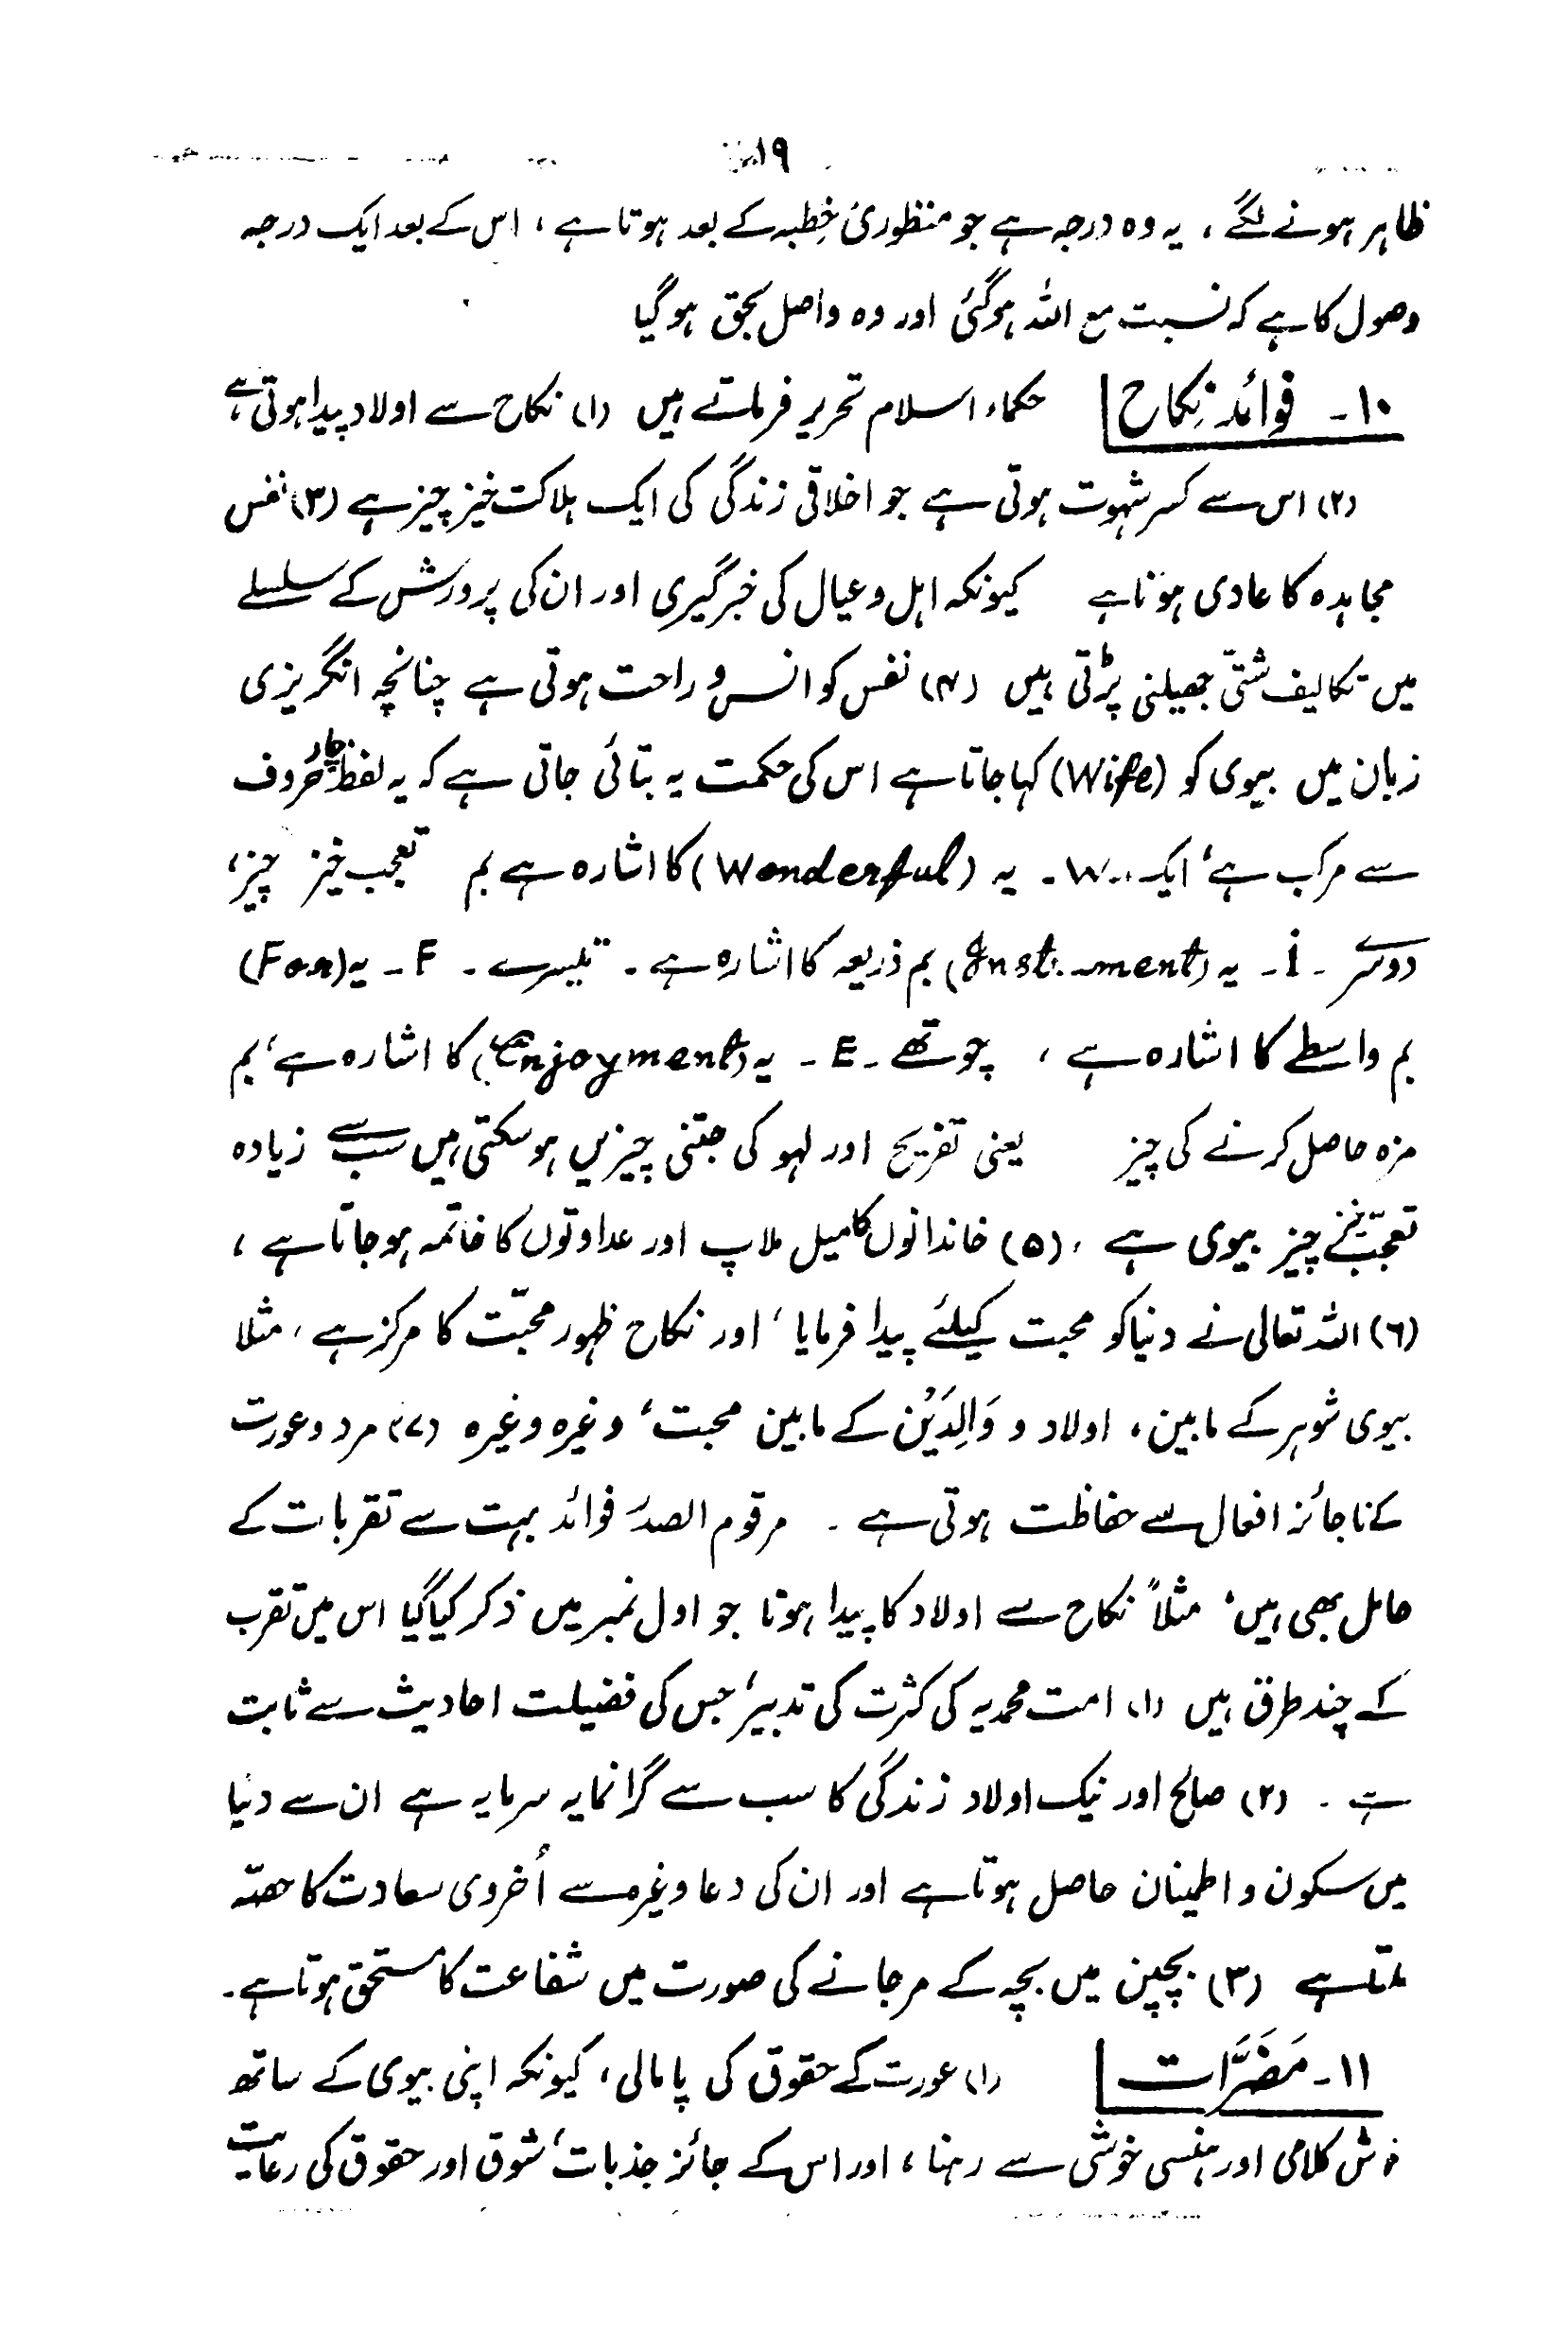 ۱۹
ظاہر ہونے لگے ، یہ وہ درجہ ہے جو منظوریٔ خِطبہ کے بعد ہوتا ہے ، اس کے بعد ایک درجہ
وصول کا ہے کہ نسبت مع اللہ ہوگئی اور وہ واصل بحق ہوگیا
۱۰۔ فوائد نِکاح حکماء اسلام تحریر فرماتے ہیں (۱) نکاح سے اولاد پیدا ہوتی ہے،
(۲) اس سے کسر شہوت ہوتی ہے جو اخلاقی زندگی کی ایک ہلاکت خیز چیز ہے (۳) نفس
مجاہدہ کا عادی ہوتا ہے کیونکہ اہل و عیال کی خبرگیری اور ان کی پرورش کے سلسلے
میں تکالیف شتّی جھیلنی پڑتی ہیں (۴) نفس کو انس و راحت ہوتی ہے چنانچہ انگریزی
زبان میں بیوی کو (Wife) کہا جاتا ہے اس کی حکمت یہ بتائی جاتی ہے کہ یہ لفظ چار حُروف
سے مرکب ہے، ایک ۔ W ۔ یہ (Wonderful) کا اشارہ ہے بم تعجب خیز چیز،
دوسرے ۔ i ۔ یہ (Inst..ment) بم ذریعہ کا اشارہ ہے ۔ تیسرے ۔ F ۔ یہ (For)
بم واسطے کا اشارہ ہے ، چوتھے ۔ E ۔ یہ (Enjoyment) کا اشارہ ہے، بم
مزہ حاصل کرنے کی چیز یعنی تفریح اور لہو کی جتنی چیزیں ہوسکتی ہیں سب سے زیادہ
تعجّب خیز چیز بیوی ہے ، (۵) خاندانوں کا میل ملاپ اور عداوتوں کا خاتمہ ہوجاتا ہے ،
(۶) اللہ تعالی نے دنیا کو محبت کیلئے پیدا فرمایا ، اور نکاح ظہور محبّت کا مرکز ہے ، مثلا
بیوی شوہر کے مابین ، اولاد و وَالِدَیْن کے مابین محبت ، وغیرہ وغیرہ (۷) مرد و عورت
کے ناجائز افعال سے حفاظت ہوتی ہے ۔ مرقوم الصدر فوائد بہت سے تقربات کے
حامل بھی ہیں، مثلاً نکاح سے اولاد کا پیدا ہونا جو اول نمبر میں ذکر کیا گیا اس میں تقرب
کے چند طرق ہیں (۱) امت محمدیہ کی کثرت کی تدبیر، جس کی فضیلت احادیث سے ثابت
ہے ۔ (۲) صالح اور نیک اولاد زندگی کا سب سے گرانمایہ سرمایہ ہے ان سے دنیا
میں سکون و اطمینان حاصل ہوتا ہے اور ان کی دعا وغیرہ سے اُخروی سعادت کا حصّہ
ملتا ہے (۳) بچپن میں بچہ کے مرجانے کی صورت میں شفاعت کا مستحق ہوتا ہے ۔
۱۱۔ مَضَرَّات (۱) عورت کے حقوق کی پامالی ، کیونکہ اپنی بیوی کے ساتھ
خوش کلامی اور ہنسی خوشی سے رہنا ، اور اس کے جائز جذبات، شوق اور حقوق کی رعایت